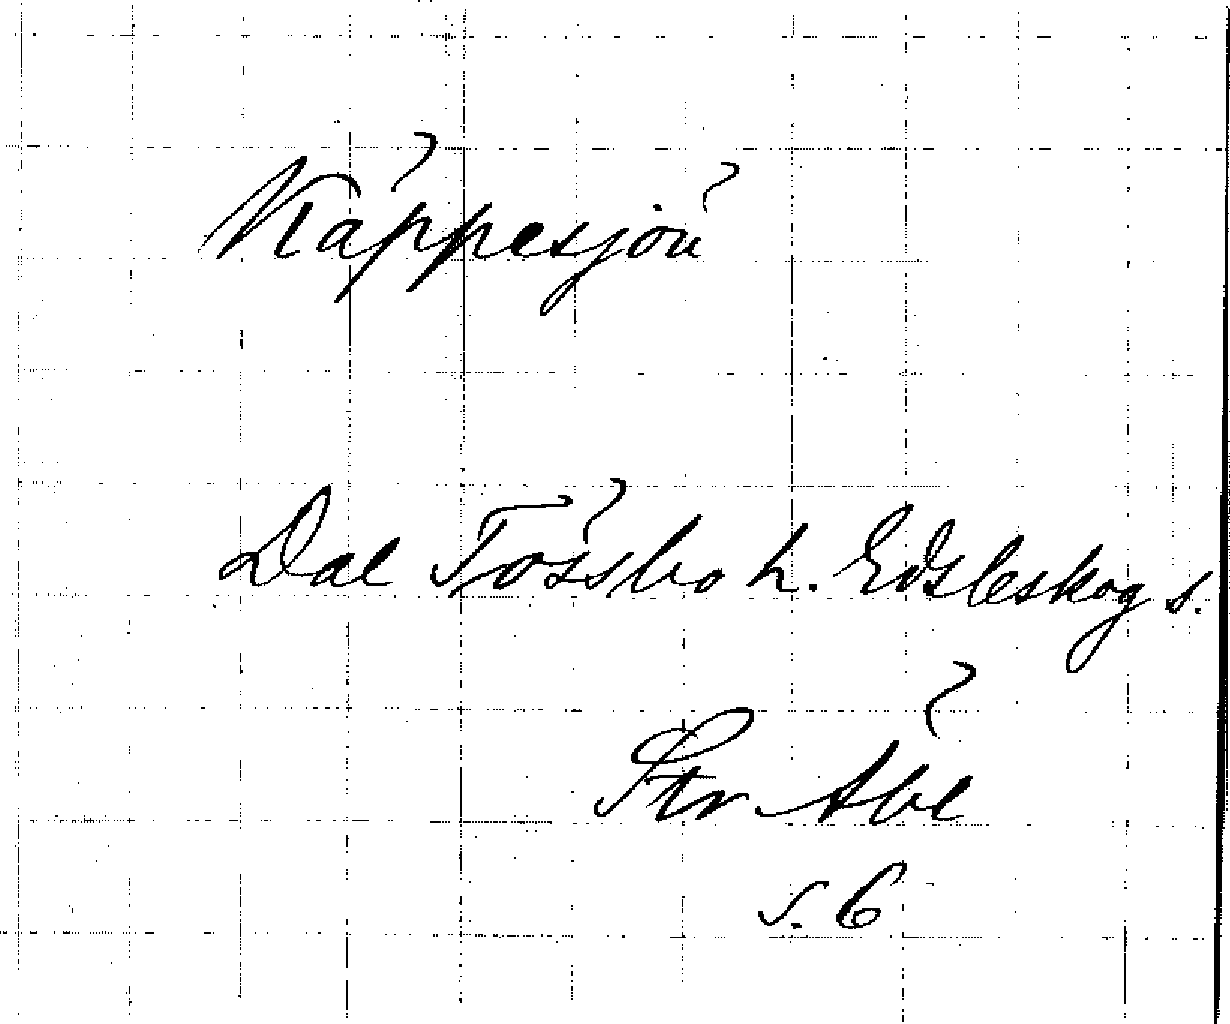 Käppesjön
Dal Tössbo h. Edsleskog s.
Str Äbl
s. 6